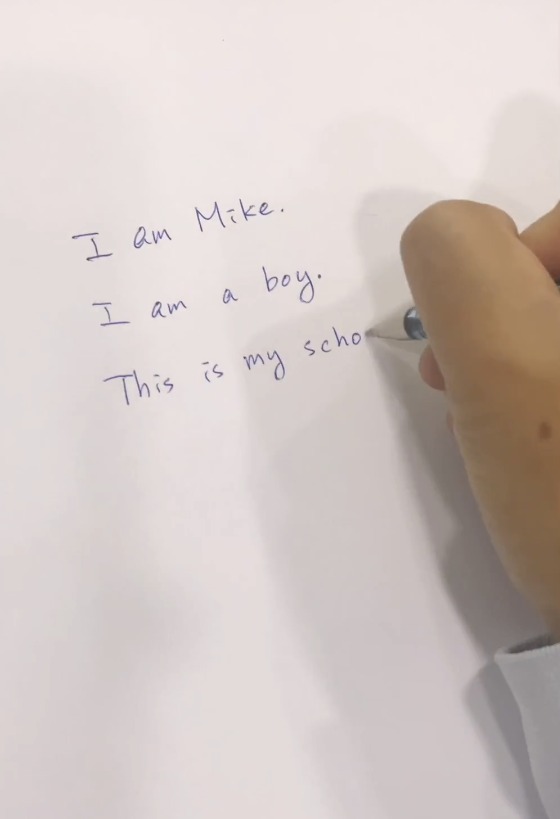 I am Mike.
I am a boy.
This is my scho